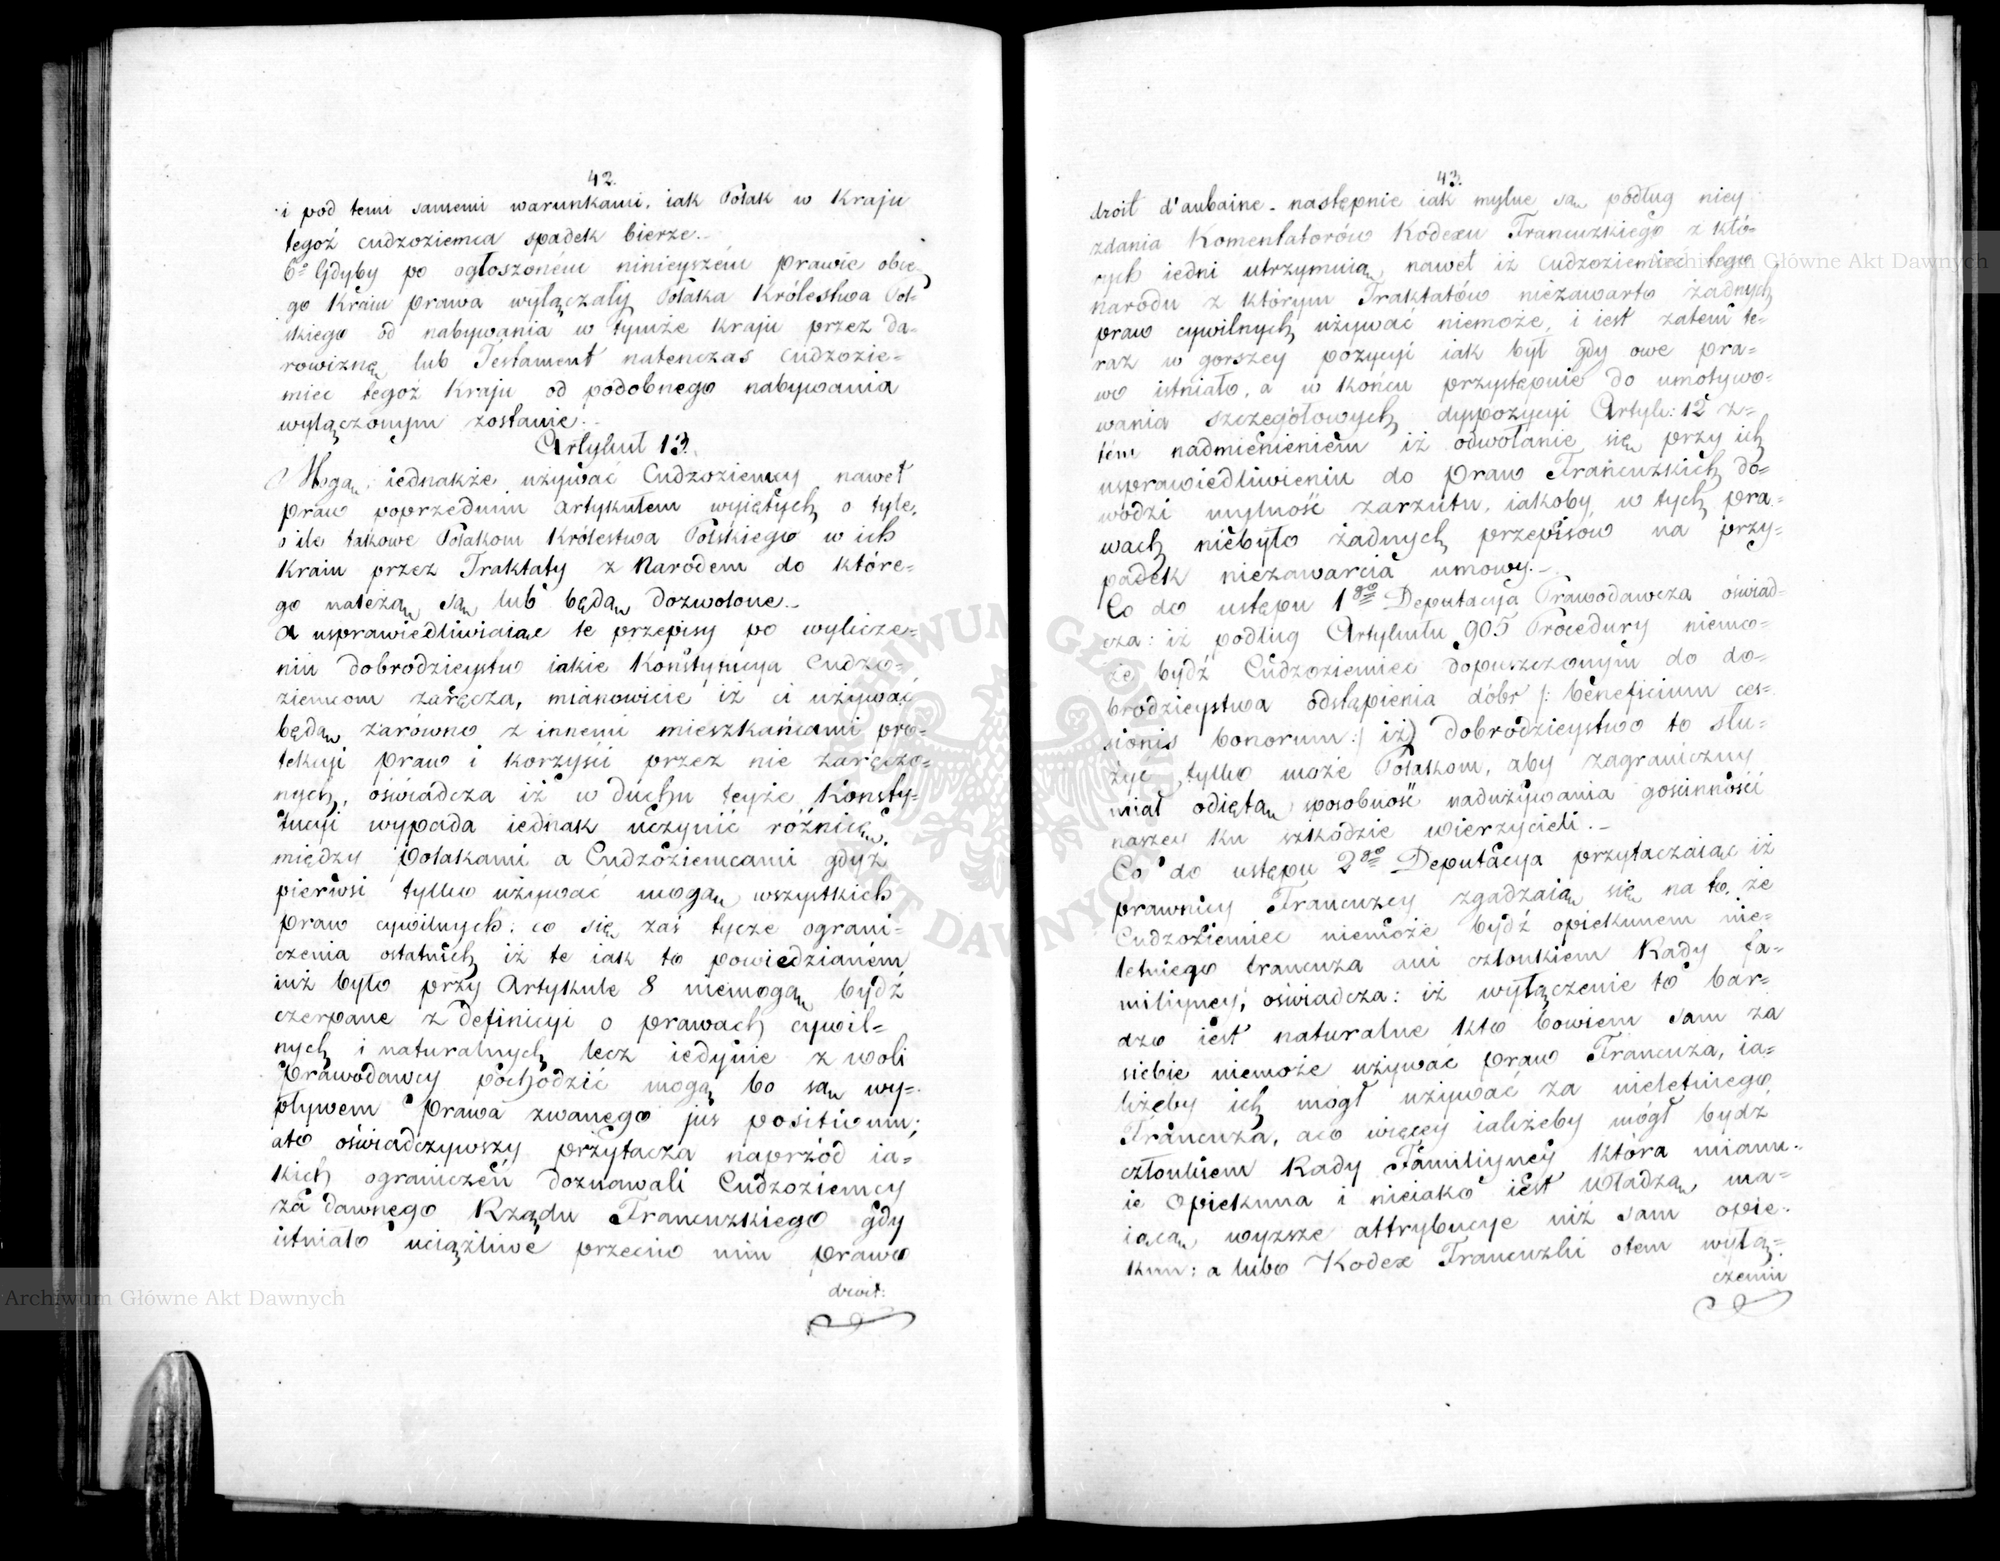 42.
i pod temi samemi warunkami, iak Polak w Kraju
tegoż cudzoziemca spadek bierze.
6° Gdyby po ogłoszoném ninieyszém prawie obce-
go Kraiu prawa wyłączały Polaka Królestwa Pol-
skiego od nabywania w tymże Kraju przez da-
rowiznę lub Testament natenczas Cudzozie-
miec tegoż Kraju od podobnego nabywania
wyłączonym zostanie.
Artykuł 13.
Mogą iednakże używać Cudzoziemcy nawet
praw poprzednim Artykułem wyiętych o tyle,
o ile takowe Polakom Królestwa Polskiego w ich
Kraiu przez Traktaty z Narodem do które-
go należą, są lub będą dozwolone.
A usprawiedliwiaiąc te przepisy po wylicze-
niu dobrodzieystw iakie Konstytucya Cudzo-
ziemcom zaręcza, mianowicie iż ci używać
będą zarówno z innemi mieszkańcami pro-
tekcyi praw i korzyści przez nie zaręczo-
nych, oświadcza iż w duchu teyże Konsty-
tucyi wypada iednak uczynić różnicę
między Polakami a Cudzoziemcami gdyż
pierwsi tylko używać mogą wszystkich
praw cywilnych; co się zaś tycze ograni-
czenia ostatnich iż te iak to powiedzianém
iuż było przy Artykule 8 niemogą bydź
czerpane z definicyi o prawach cywil-
nych i naturalnych lecz iedynie z woli
Prawodawcy pochodzić mogą bo są wy-
pływem Prawa zwanego jus positivum;
a to oświadczywszy przytacza naprzód ia-
kich ograniczeń doznawali Cudzoziemcy
za dawnego Rządu Francuzkiego gdy
istniało uciążliwe przeciw nim prawo
droit:
43.
droit d'aubaine. następnie iak mylne są podług niey
zdania Komentatorów Kodexu Francuzkiego z któ-
rych iedni utrzymuią nawet iż Cudzoziemiec tego
narodu z którym Traktatów niezawarto żadnych
praw cywilnych używać niemoże, i iest zatem te-
raz w gorszey pozycyi iak był gdy owe pra-
wo istniało, a w końcu przystępuie do umotywo-
wania szczegółowych dyspozycyi Artyk: 12 z
tém nadmienieniem iż odwołanie się przy ich
usprawiedliwieniu do Praw Francuzkich do-
wodzi mylność zarzutu, iakoby w tych pra-
wach niebyło żadnych przepisow na przy-
padek niezawarcia umowy.
Co do ustępu 1go Deputacya Prawodawcza oświad-
cza: iż podług Artykułu 905 Procedury niemo-
że bydź Cudzoziemiec dopuszczonym do do-
brodzieystwa odstąpienia dóbr /: beneficium ces-
sionis bonorum:/ iż dobrodzieystwo to słu-
żyć tylko może Polakom, aby zagraniczny
miał odiętą sposobność nadużywania gościnności
naszey ku szkodzie wierzycieli.
Co do ustępu 2go Deputacya przytaczaiąc iż
prawnicy Francuzcy zgadzaią się na to, że
Cudzoziemiec niemoże bydź opiekunem nie-
letniego francuza ani członkiem Rady fa-
miliyney, oświadcza: iż wyłączenie to bar-
dzo iest naturalne kto bowiem sam za
siebie niemoże używać praw Francuza, ia-
kżeby ich mógł używać za nieletniego
Francuza, a co więcey iakżeby mógł bydź
członkiem Rady Familiyney która mianu-
ie Opiekuna i nieiako iest władzą ma-
iącą wyższe attrybucye niż sam opie-
kun: a lubo Kodex Francuzki o tem wyłą-
czeniu
Archiwum Główne Akt Dawnych
Archiwum Główne Akt Dawnych
ARCHIWUM GŁÓWNE AKT DAWNYCH